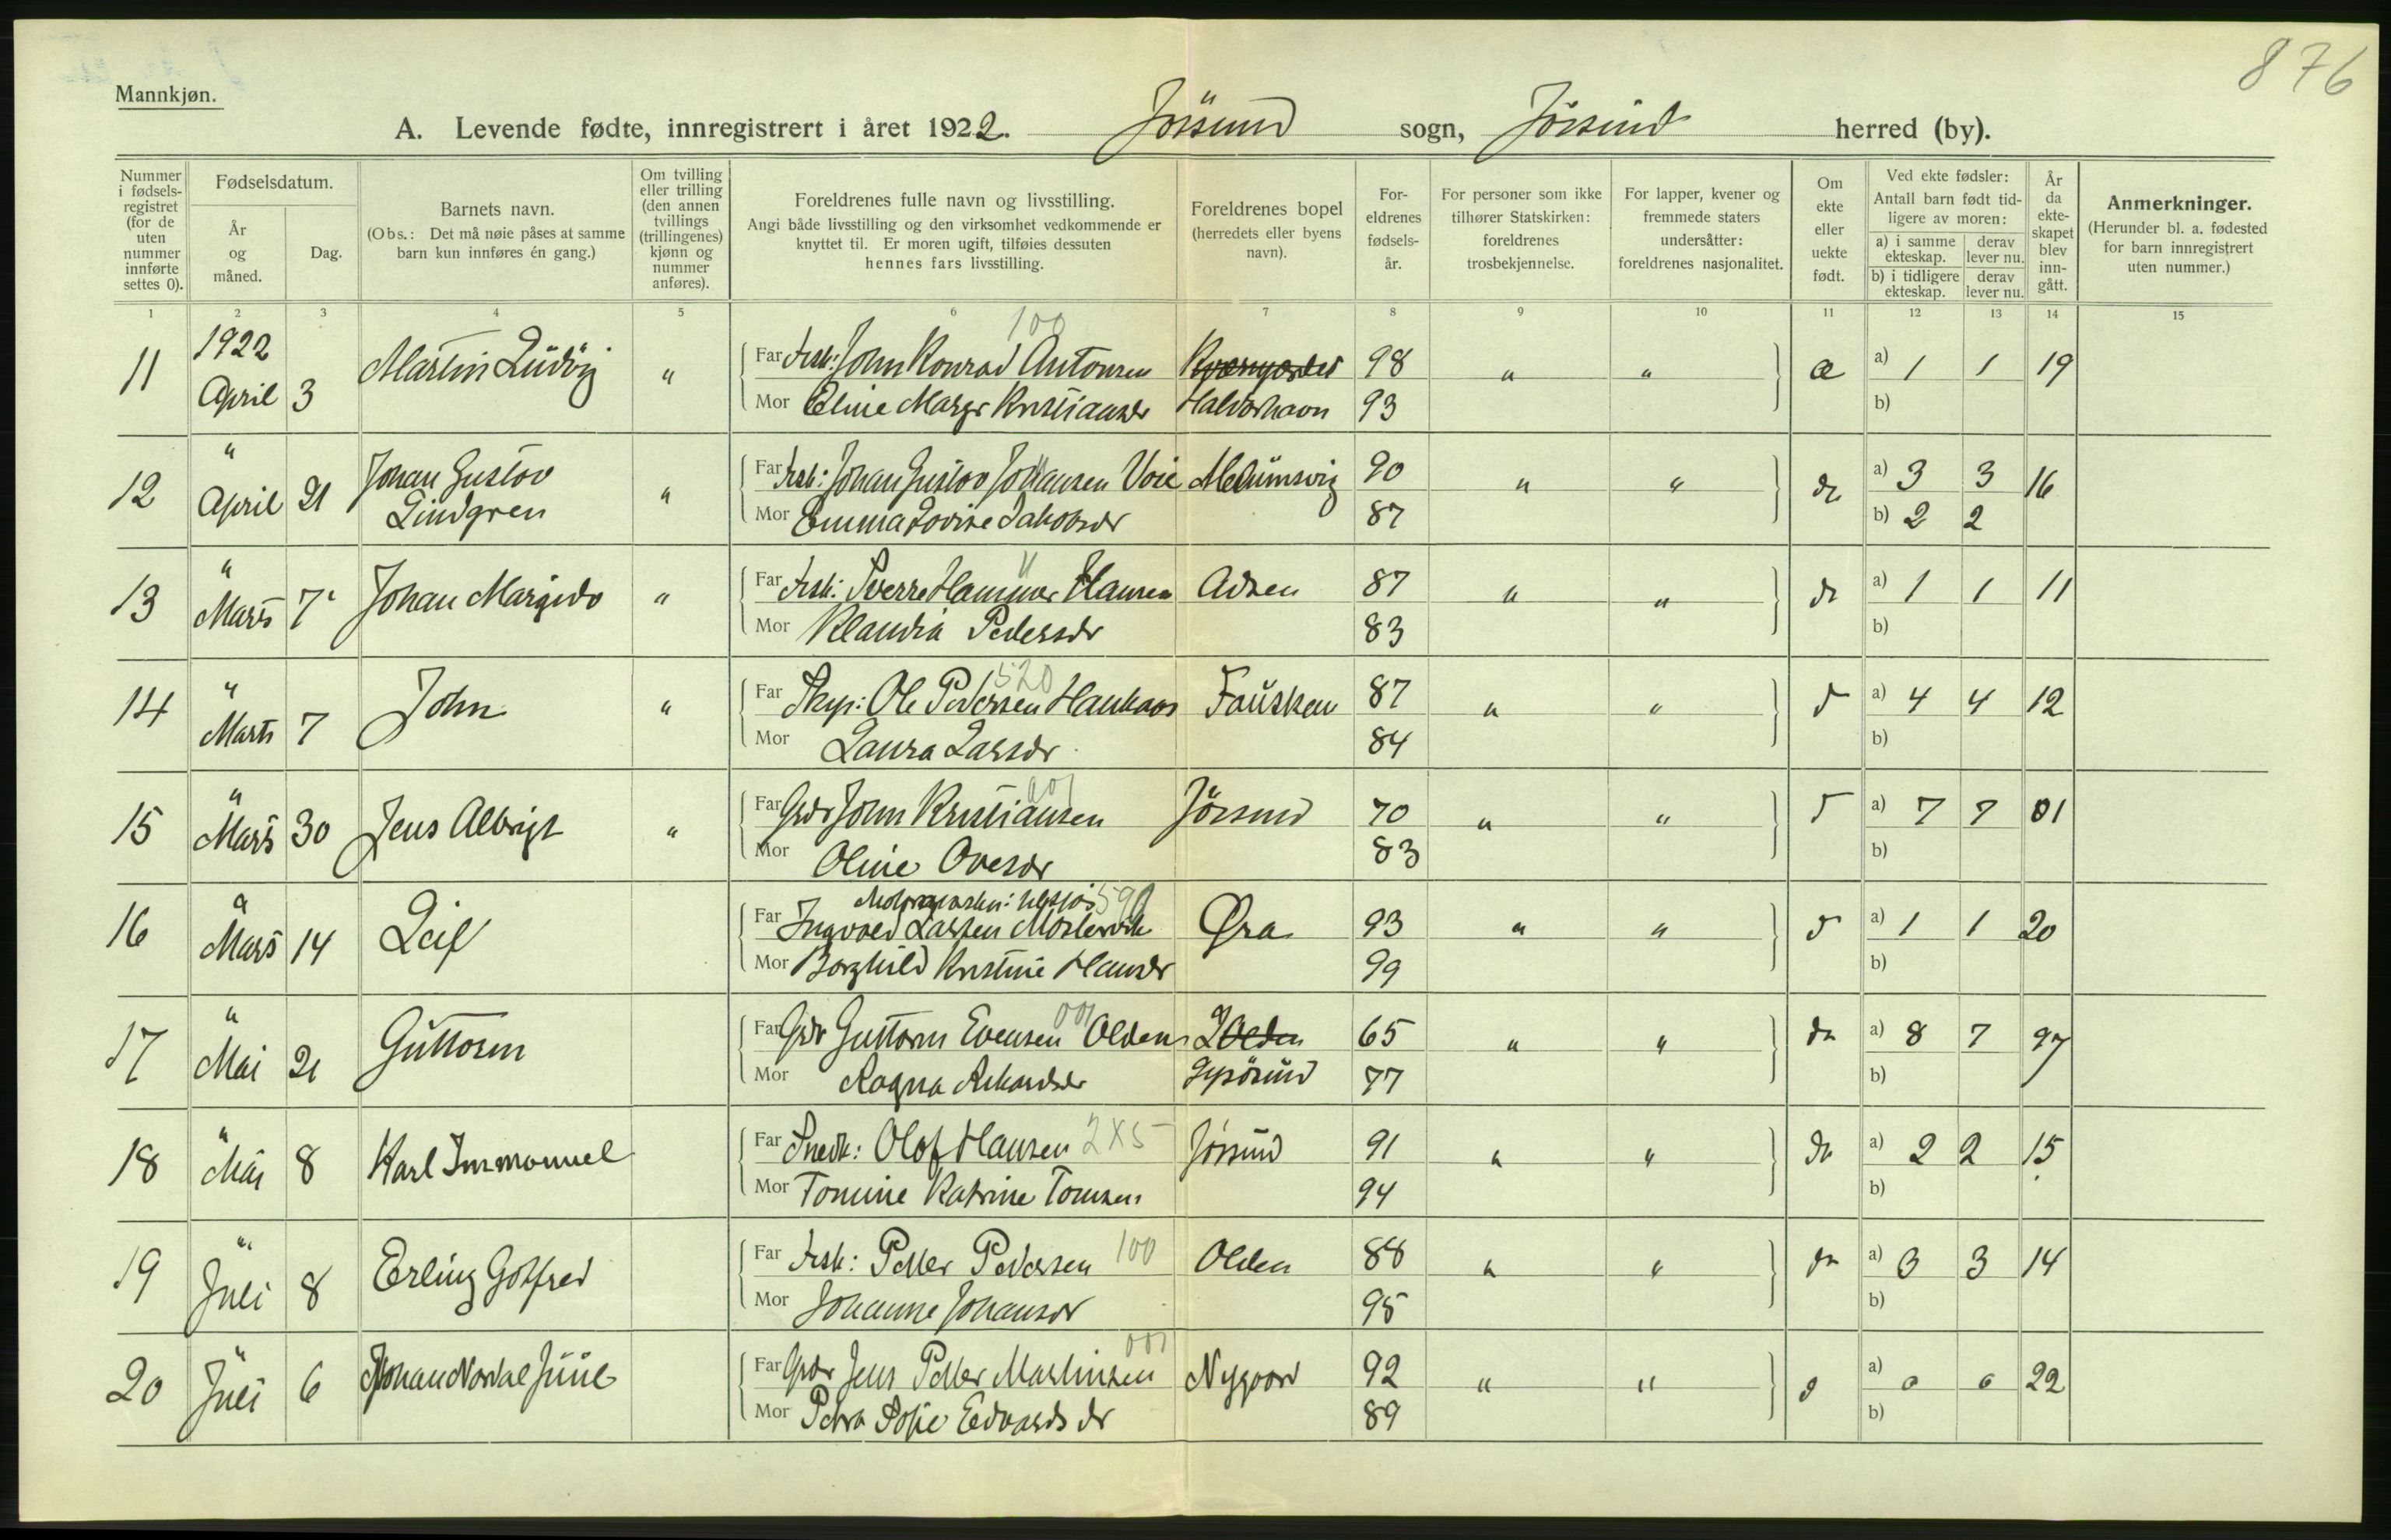 876
Mannkjøn.
A. Levende fødte, innregistrert i året 1922. Jössund sogn, Jössund herred (by).
Nummer i fødsels-registret (for de uten nummer innførte settes 0).
Fødselsdatum.
År og måned.
Dag.
Barnets navn.
(Obs.: Det må nøie påses at samme barn kun innføres én gang.)
Om tvilling eller trilling (den annen tvillings (trillingenes) kjønn og nummer anføres).
Foreldrenes fulle navn og livsstilling.
Angi både livsstilling og den virksomhet vedkommende er knyttet til. Er moren ugift, tilføies dessuten hennes fars livsstilling.
Foreldrenes bopel (herredets eller byens navn).
For-eldrenes fødsels-år.
For personer som ikke tilhører Statskirken: foreldrenes trosbekjennelse.
For lapper, kvener og fremmede staters undersåtter: foreldrenes nasjonalitet.
Om ekte eller uekte født.
Ved ekte fødsler:
Antall barn født tid-ligere av moren:
a) i samme ekteskap.
derav lever nu.
b) i tidligere ekteskap.
derav lever nu.
År da ekte-skapet blev inn-gått.
Anmerkninger.
(Herunder bl. a. fødested for barn innregistrert uten nummer.)
1 2 3 4 5 6 7 8 9 10 11 12 13 14 15
100
11 1922 April 3 Martin Ludvig " Far Fisk: John Konrad Antonsen 98 " " æ a) 1 1 19
Mor Eline Margr Kristiansdr Halvorhavn 93 b)
12 " April 21 Johan Gustav Lindgren " Far Fisk: Johan Gustav Johansen Voie Melumsvig 90 " " do a) 3 3 16
Mor Emma Lovise Jakobsdr 87 b) 2 2
13 " Mars 7 Johan Margido " Far Fisk: Sverre Hammer Hansen Adsen 87 " " do a) 1 1 11
Mor Klaudia Pedersdr 83 b)
520
14 " Marts 7 John " Far Skp: Ole Pedersen Haukaas Fausken 87 " " a) 4 4 12
Mor Laura Larsdr 84 b)
001
15 " Mars 30 Jens Albrigt " Far Grdr John Kristiansen Jössund 70 " " a) 7 7 01
Mor Oline Ovesdr 83 b)
590
16 " Mars 14 Leif Far Ingvald Larsen Mostervik Øra 93 " " a) 1 1 20
Mor Borghild Kristine Hansdr 99 b)
001
17 " Mai 21 Guttorm Far Grdr Guttorm Evensen Olden Olden 65 " " do a) 8 7 97
Mor Ragna Rikardsdr Lysösund 77 b)
18 " Mai 8 Karl Immanuel Far Snedk: Olof Hansen 2X5 Jössund 91 " " do a) 2 2 15
Mor Tomine Katrine Tomsen 94 b)
19 " Juli 8 Erling Gotfred Far Fisk: Petter Pedersen 100 Olden 88 " " do a) 3 3 14
Mor Johanne Johansdr 95 b)
001
20 " Juli 6 Johan Norval Juul Far Grdr Jens Petter Martinsen Nygaard 92 " " d a) 0 0 22
Mor Petra Sofie Edvardsdr 89 b)